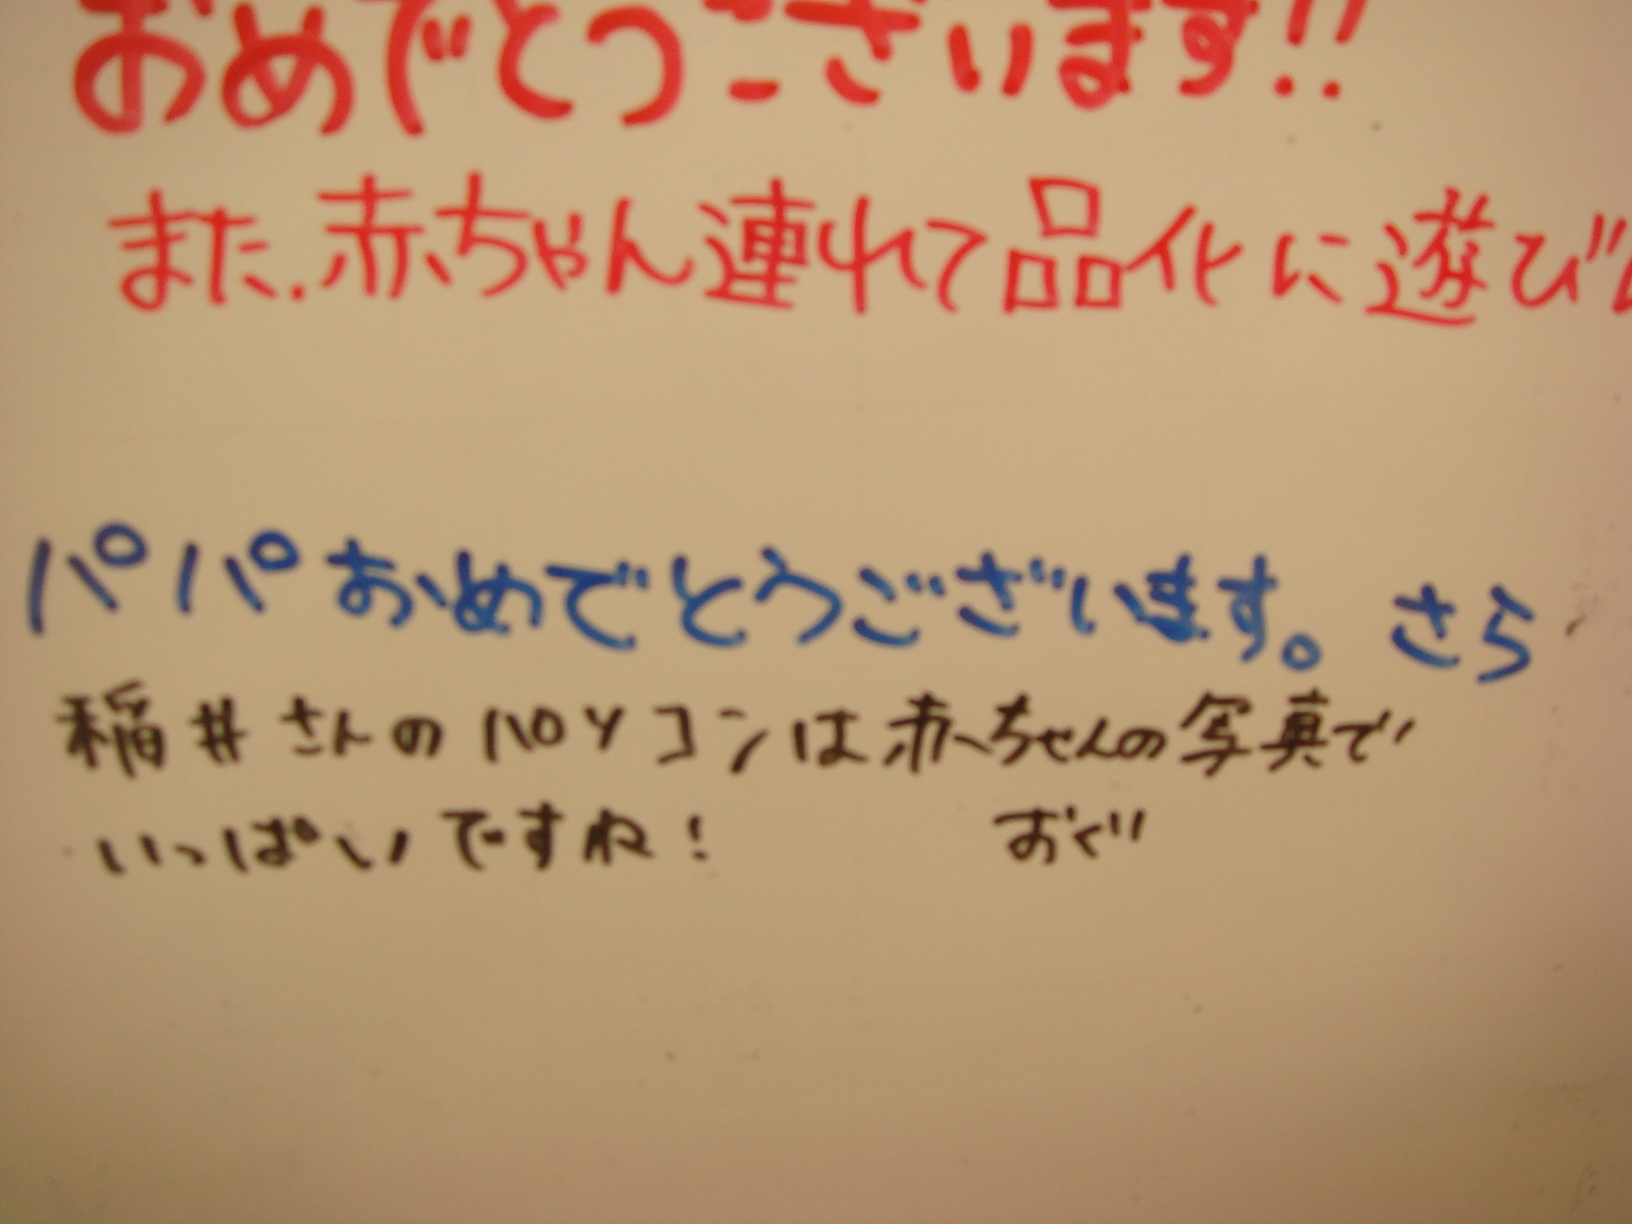 おめでとうございます!!
また.赤ちゃん連れて品化に遊び
パパおめでとうございます。さら
稲井さんのパソコンは赤ちゃんの写真で
いっぱいですね! おぐ